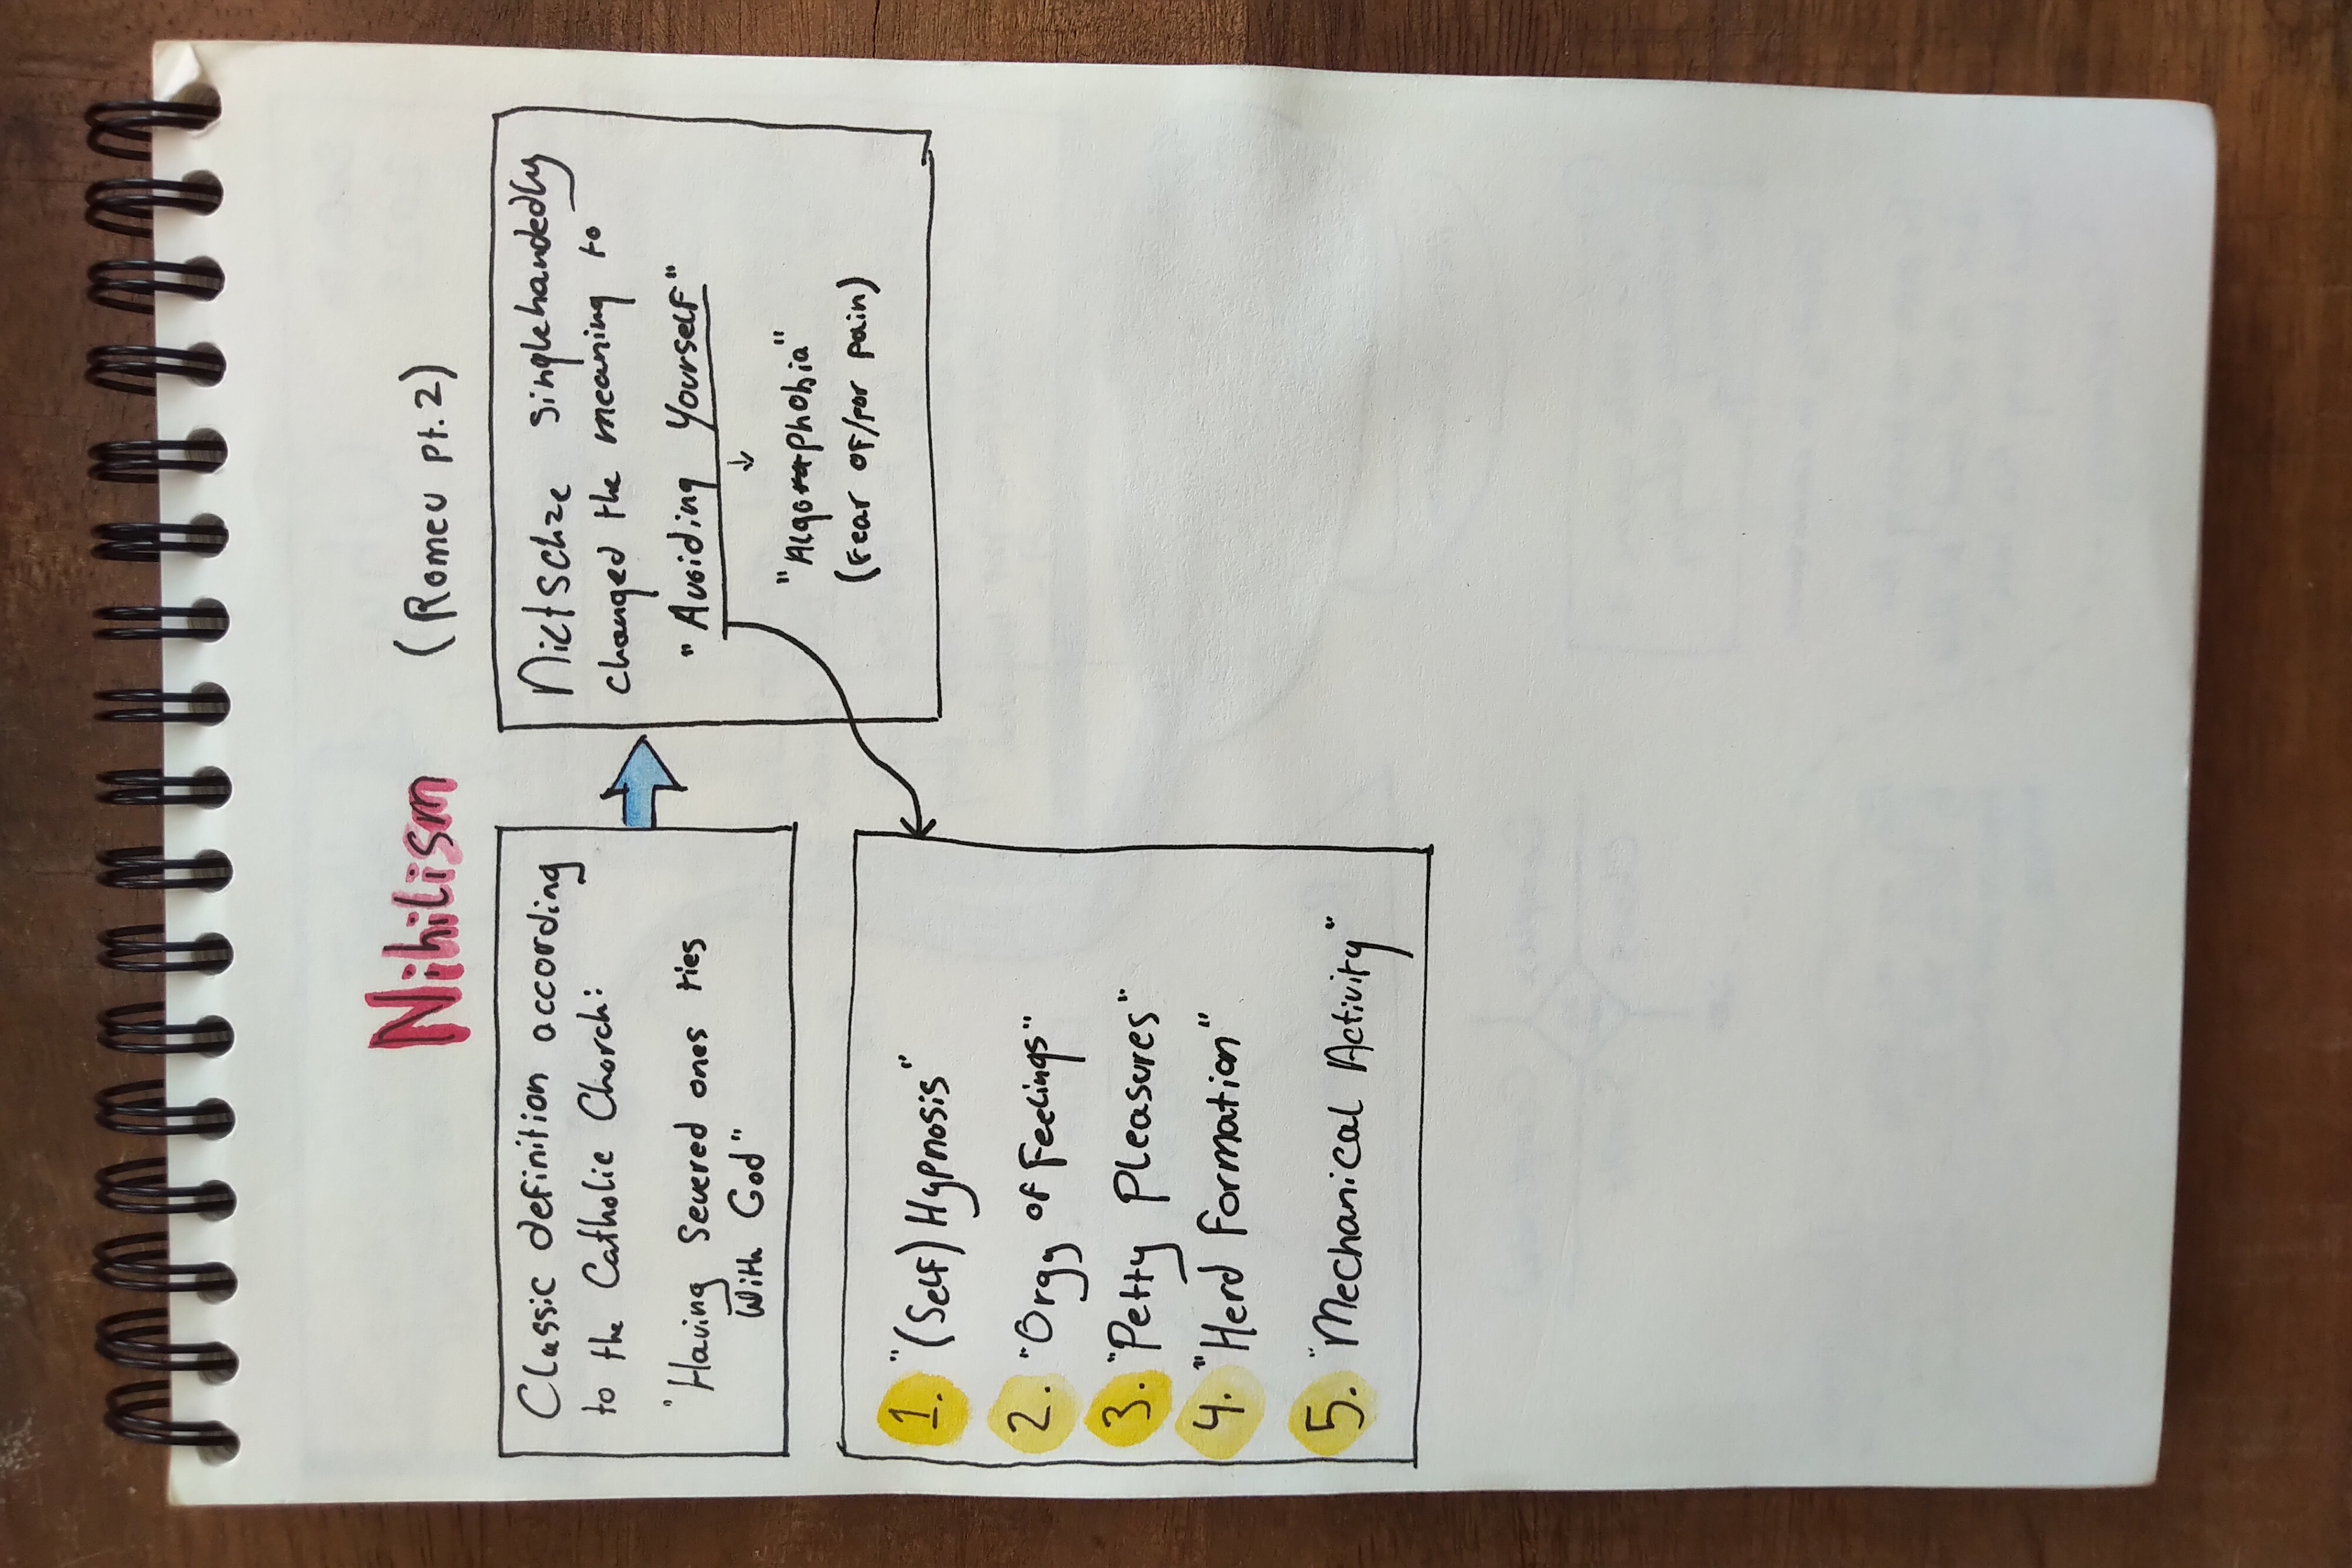 Nihilism (Romeu pt.2)
Classic definition according
to the Catholic Chorch:
"Having Severed ones ties
With God"
Nietschze singlehandedly
changed the meaning to
"Avoiding Yourself"
↓
"Algophobia"
(Fear of/for pain)
1. "(Self) Hypnosis"
2. "Orgy of Feelings"
3. "Petty Pleasures"
4. "Herd Formation"
5. "Mechanical Activity"